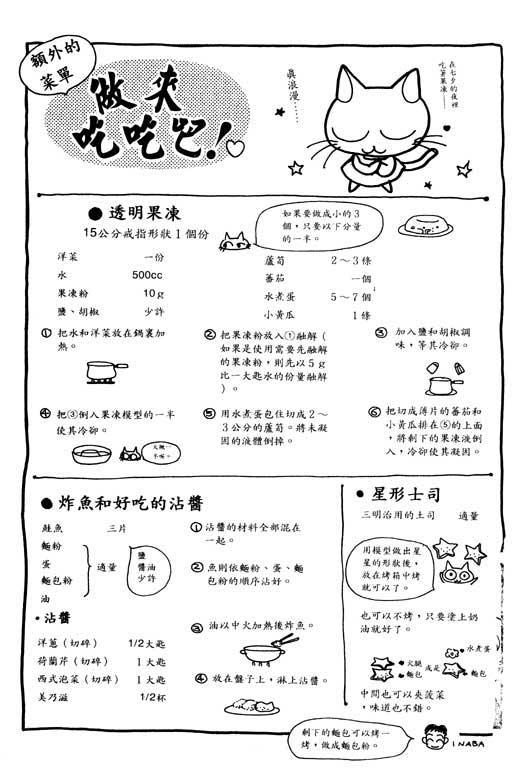 額外的
菜單
做來
吃吃吧!
真浪漫……
在七夕的夜裡
吃著果凍——
●透明果凍
15公分戒指形狀1個份
如果要做成小的3
個,只要以下分量
的一半。
洋菜 一份
水 500cc
果凍粉 10g
鹽、胡椒 少許
蘆筍 2~3條
蕃茄 一個
水煮蛋 5~7個
小黃瓜 1條
①把水和洋菜放在鍋裏加
熱。
②把果凍粉放入①融解(
如果是使用需要先融解
的果凍粉,則先以5g
比一大匙水的份量融解
)。
③加入鹽和胡椒調
味,等其冷卻。
④把③倒入果凍模型的一半
使其冷卻。
⑤用水煮蛋包住切成2~
3公分的蘆筍。將未凝
因的液體倒掉。
⑥把切成薄片的蕃茄和
小黃瓜排在⑤的上面
,將剩下的果凍液倒
入,冷卻使其凝因。
●炸魚和好吃的沾醬
鮭魚 三片
麵粉
蛋
麵包粉
油
適量
鹽
醬油
少許
·沾醬
洋蔥(切碎) 1/2大匙
荷蘭芹(切碎) 1大匙
西式泡菜(切碎) 1大匙
美乃滋 1/2杯
①沾醬的材料全部混在
一起。
②魚則依麵粉、蛋、麵
包粉的順序沾好。
③油以中火加熱後炸魚。
④放在盤子上,淋上沾醬。
●星形士司
三明治用的土司 適量
用模型做出星
星的形狀後,
放在烤箱中烤
就可以了。
也可以不烤,只要塗上奶
油就好了。
火腿
麵包
或是
水煮蛋
麵包
中間也可以夾菠菜
,味道也不錯。
剩下的麵包可以烤一
烤,做成麵包粉。
INABA